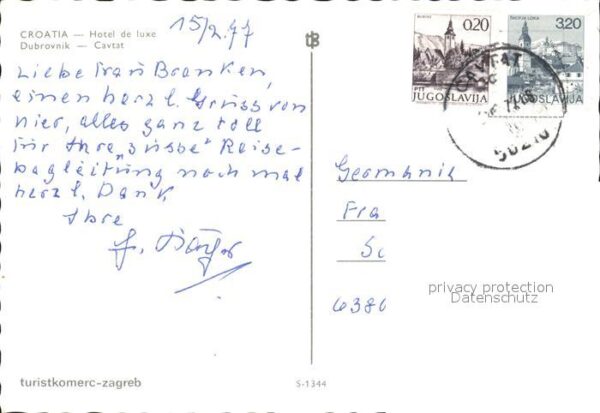 15/2.77
CROATIA — Hotel de luxe
Dubrovnik — Cavtat
Liebe Frau Branken,
einen herzl. Gruss von
hier, alles ganz toll
für Ihre „süsse" Reise-
begleitung noch mal
herzl. Dank
Ihre
BLED
0.20
PTT
JUGOSLAVIJA
ŠKOFJA LOKA
3.20
JUGOSLAVIJA
CAVTAT
50210
Geomania
Fra
Sc
6380
privacy protection
Datenschutz
turistkomerc-zagreb
S-1344